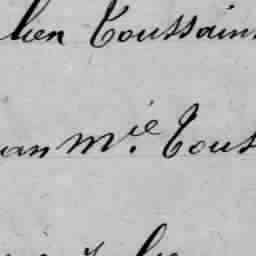 lien Toussain
an M.ie Tous